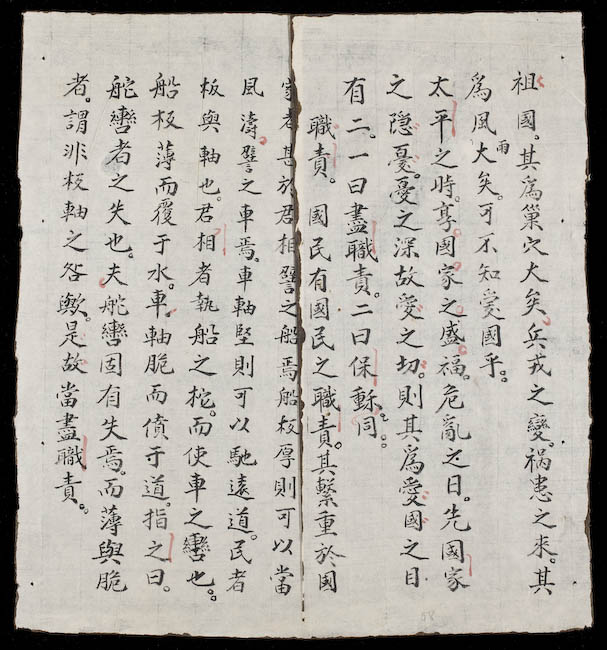 祖國。其爲巢穴大矣。兵戎之變。禍患之來。其
爲風雨大矣。可不知愛國乎。
太平之時。享國家之盛福。危亂之日。先國家
之隐憂。憂之深故愛之切。則其爲愛國之目
有二。一曰盡職責。二曰保動同。
職責。國民有國民之職責。其繫重於國
家者甚於君相譬之船焉船板厚則可以當
風濤。譬之車焉。車軸堅則可以馳遠道。民者
板與軸也。君相者執船之柁。而使車之轡也。
船板薄而覆于水。車軸脆而僨于道。指之曰。
舵轡者之失也。夫舵轡固有失焉。而薄與脆
者。謂非板軸之咎歟。是故當盡職責。
58